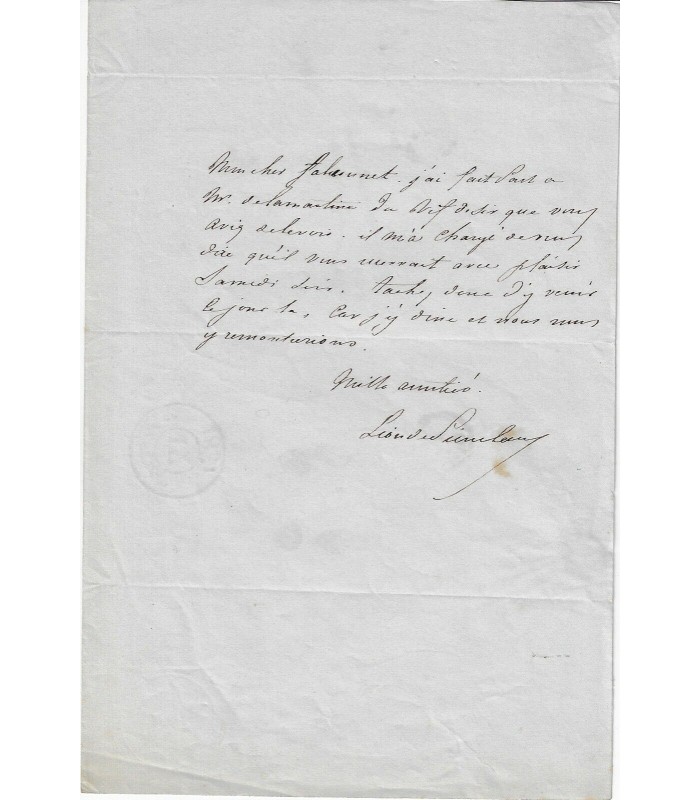 Mon cher j'ai fait part a
Mr. de lamartine du vif desir que vous
aviez de le voir. il m'a chargé de vous
dire qu'il vous verrait avec plaisir
Samedi soir. tachez donc d'y venir
ce jour la, Car j'y dine et nous nous
y rencontrerions.
Mille amitiés.
Léon de